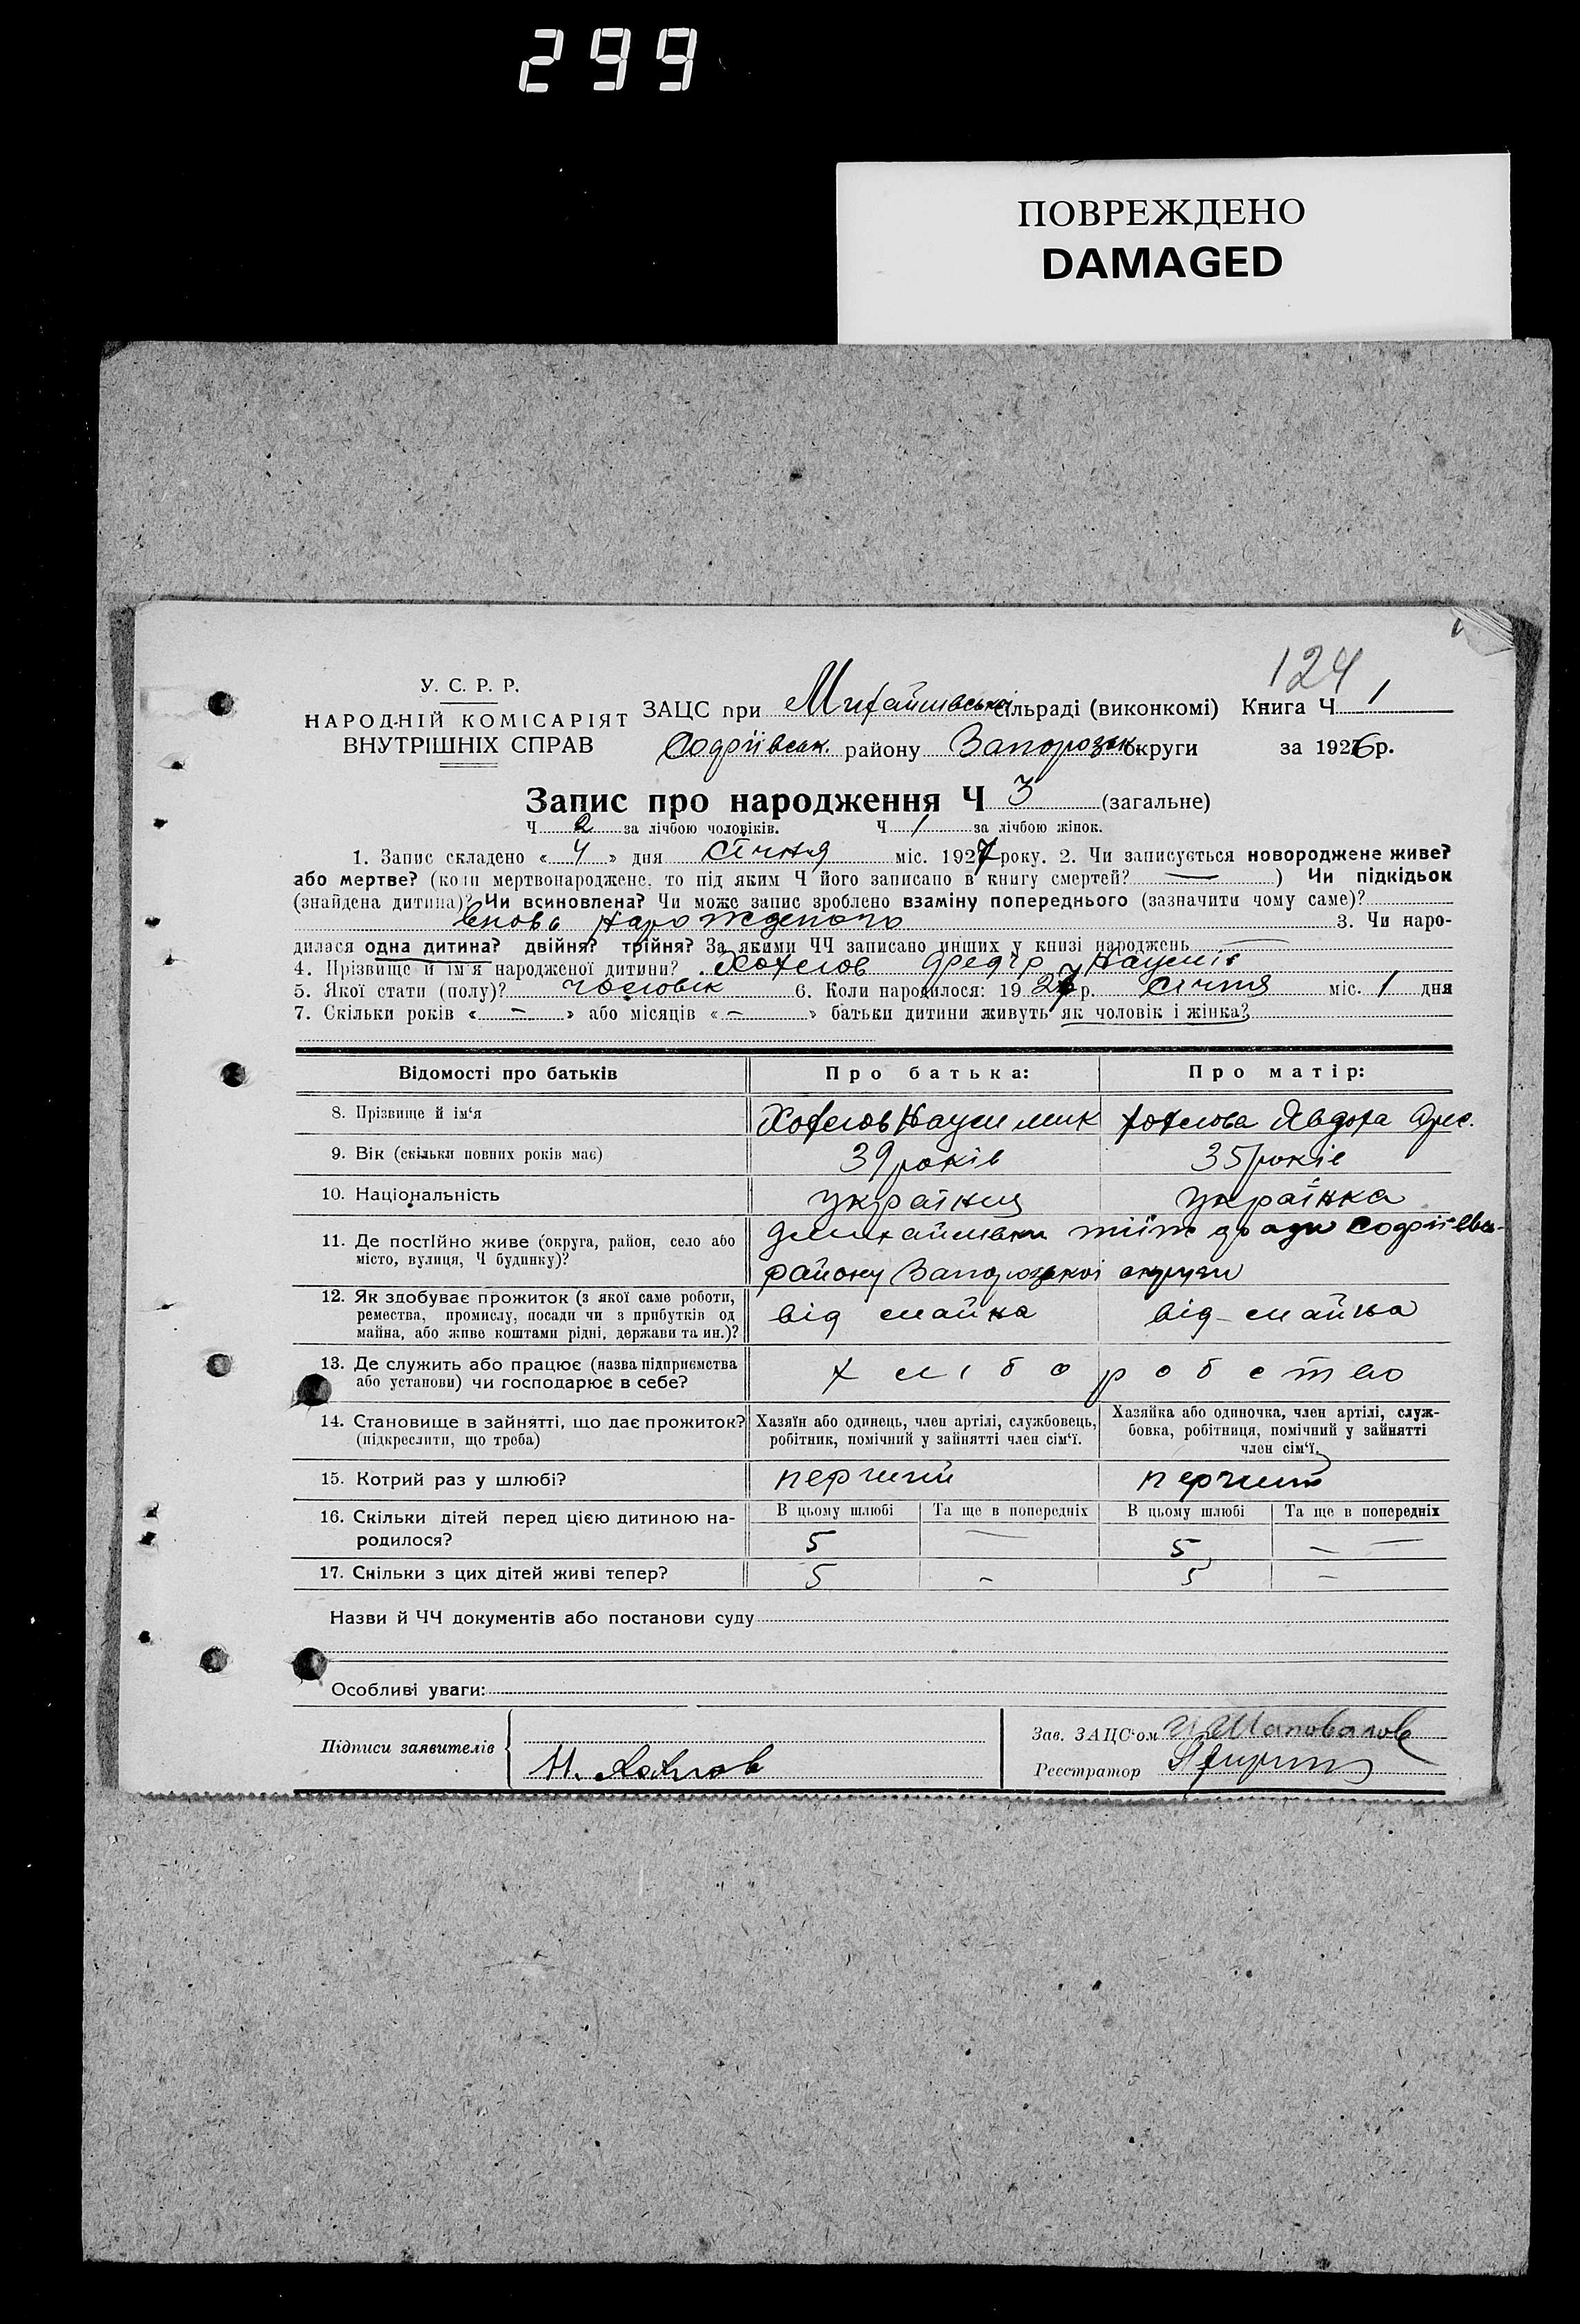 299
ПОВРЕЖДЕНО
DAMAGED
124
У. С. Р. Р.
НАРОДНІЙ КОМІСАРІЯТ
ВНУТРІШНІХ СПРАВ
ЗАЦС при Михайлівській сільраді (виконкомі) Книга Ч 1
Софіївськ. району Запорозьк. округи за 1926 р.
Запис про народження Ч 3 (загальне)
Ч 2 за лічбою чоловіків. Ч 1 за лічбою жінок.
1. Запис складено « 4 » дня січня міс. 1927 року. 2. Чи записується новороджене живе?
або мертве? (коли мертвонароджене, то під яким Ч його записано в книгу смертей? — ) Чи підкідьок
(знайдена дитина)? Чи всиновлена? Чи може запис зроблено взаміну попереднього (зазначити чому саме)?
вновь нарожденого 3. Чи наро-
дилася одна дитина? двійня? трійня? За якими ЧЧ записано инших у книзі народжень —
4. Прізвище й ім'я народженої дитини? Хохлов Федір Наумів
5. Якої стати (полу)? чоловік 6. Коли народилося: 1927 р. січня міс. 1 дня
7. Скільки років « — » або місяців « — » батьки дитини живуть як чоловік і жінка?
Відомості про батьків Про батька: Про матір:
8. Прізвище й ім'я Хохлов Наум Хохлова Явдоха
9. Вік (скільки повних років має) 39 років 35 років
10. Національність україниц українка
11. Де постійно живе (округа, район, село або
місто, вулиця, Ч будинку)?
району Запорозької округи
12. Як здобуває прожиток (з якої саме роботи,
ремества, промислу, посади чи з прибутків од
майна, або живе коштами рідні, держави та ин.)?
від майна від майна
13. Де служить або працює (назва підприємства
або установи) чи господарює в себе?
хліборобство
14. Становище в зайнятті, що дає прожиток?
(підкреслити, що треба)
Хазяїн або одинець, член артілі, службовець,
робітник, помічний у зайнятті член сім'ї.
Хазяйка або одиночка, член артілі, служ-
бовка, робітниця, помічний у зайнятті
член сім'ї.
15. Котрий раз у шлюбі? перший перший
16. Скільки дітей перед цією дитиною на-
родилося?
В цьому шлюбі Та ще в попередніх В цьому шлюбі Та ще в попередніх
5 — 5 —
17. Скільки з цих дітей живі тепер? 5 - 5 —
Назви й ЧЧ документів або постанови суду
Особливі уваги:
Підписи заявителів
Н. Хохлов
Зав. ЗАЦС'ом Шаповалов
Реєстратор